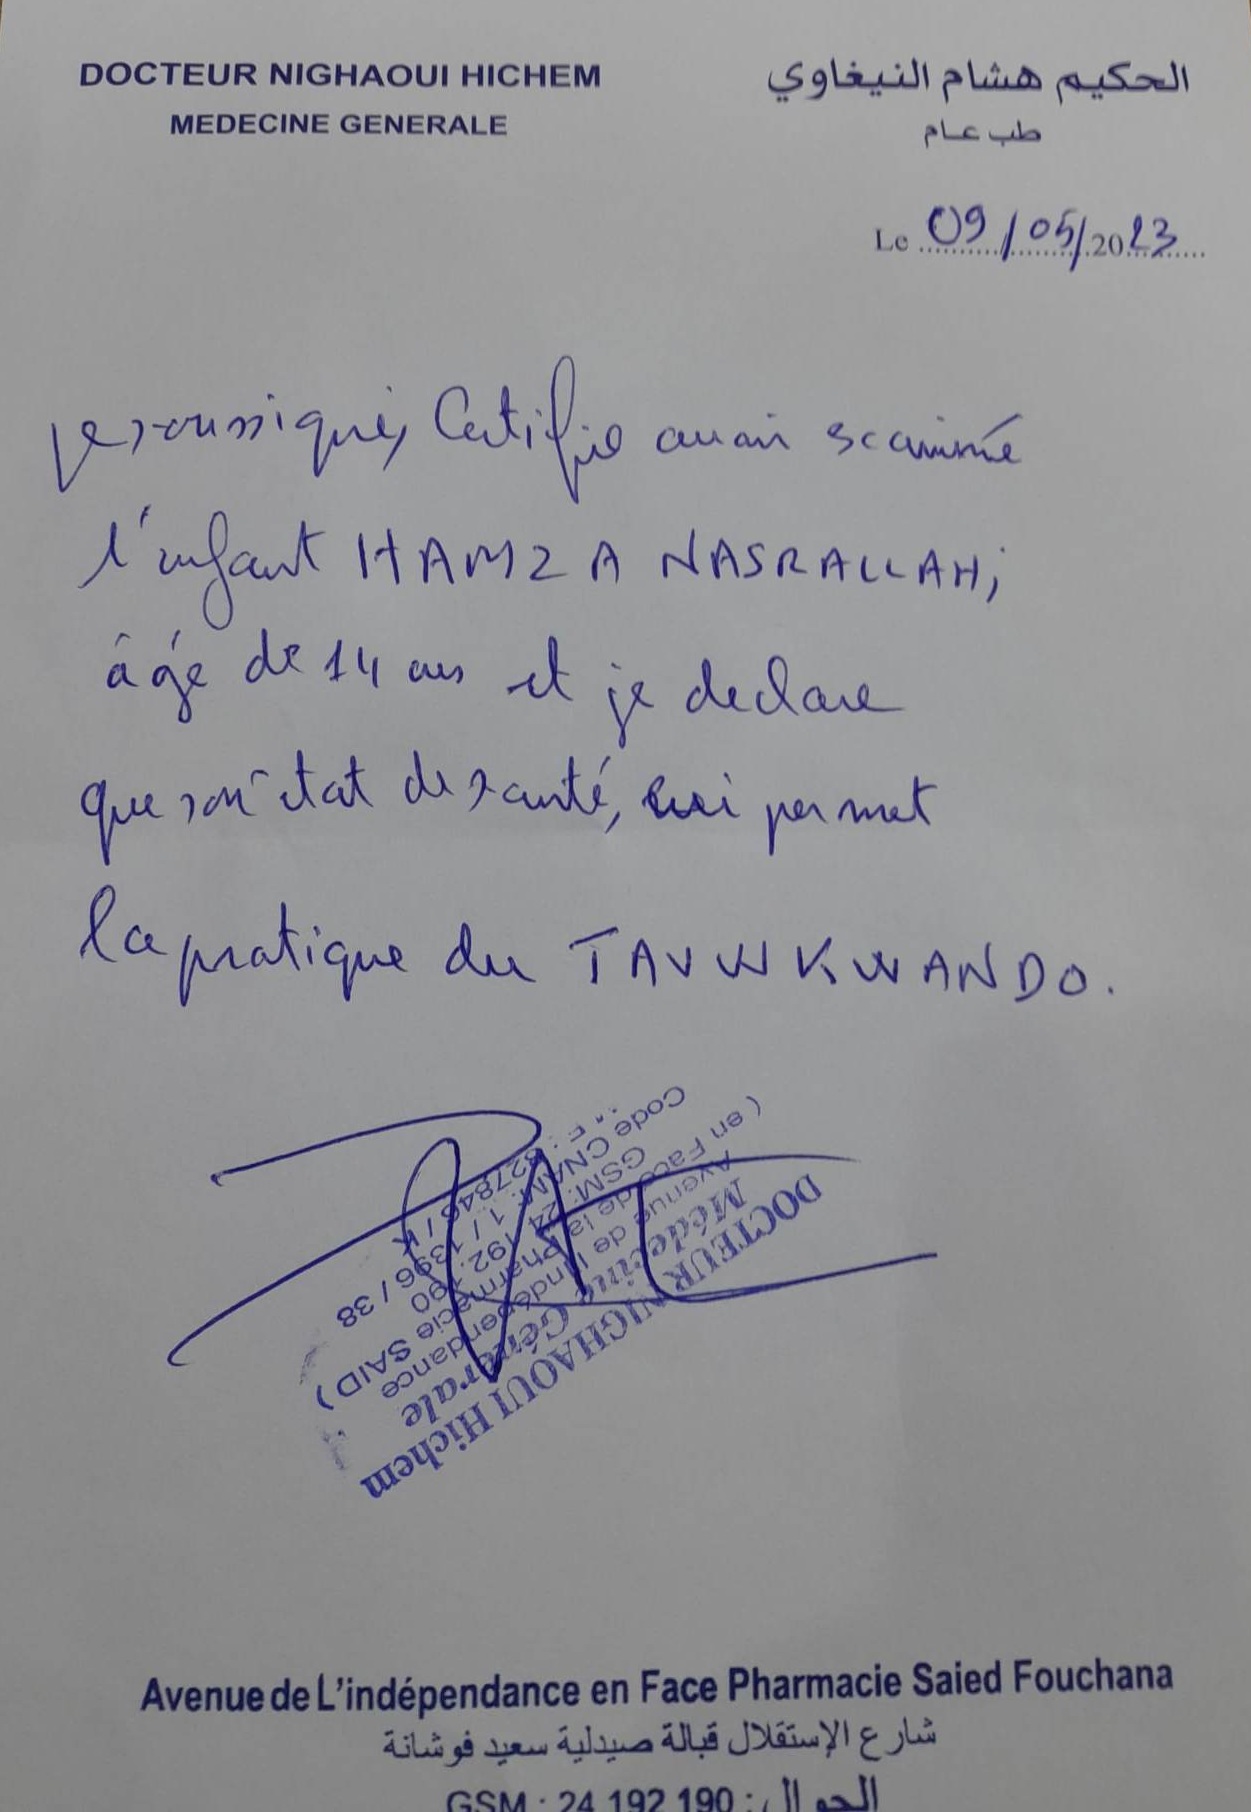 DOCTEUR NIGHAOUI HICHEM
MEDECINE GENERALE
الحكيم هشام النيغاوي
طب عام
Le 09/05/2023
Je soussigné, Certifie avoir examiné
l'enfant HAMZA NASRALLAH,
âgé de 14 ans et je declare
que son état de santé, lui permet
la pratique du TAVWKWANDO.
DOCTEUR NIGHAOUI Hichem
Médecine Générale
Avenue de l'Indépendance
( en Face de la Pharmacie SAID )
GSM: 24 192.190
Code CNAM: 1 / 1396 / 38
827846 / K
Avenue de L'indépendance en Face Pharmacie Saied Fouchana
شارع الإستقلال قبالة صيدلية سعيد فوشانة
GSM : 24 192 190 : الجوال